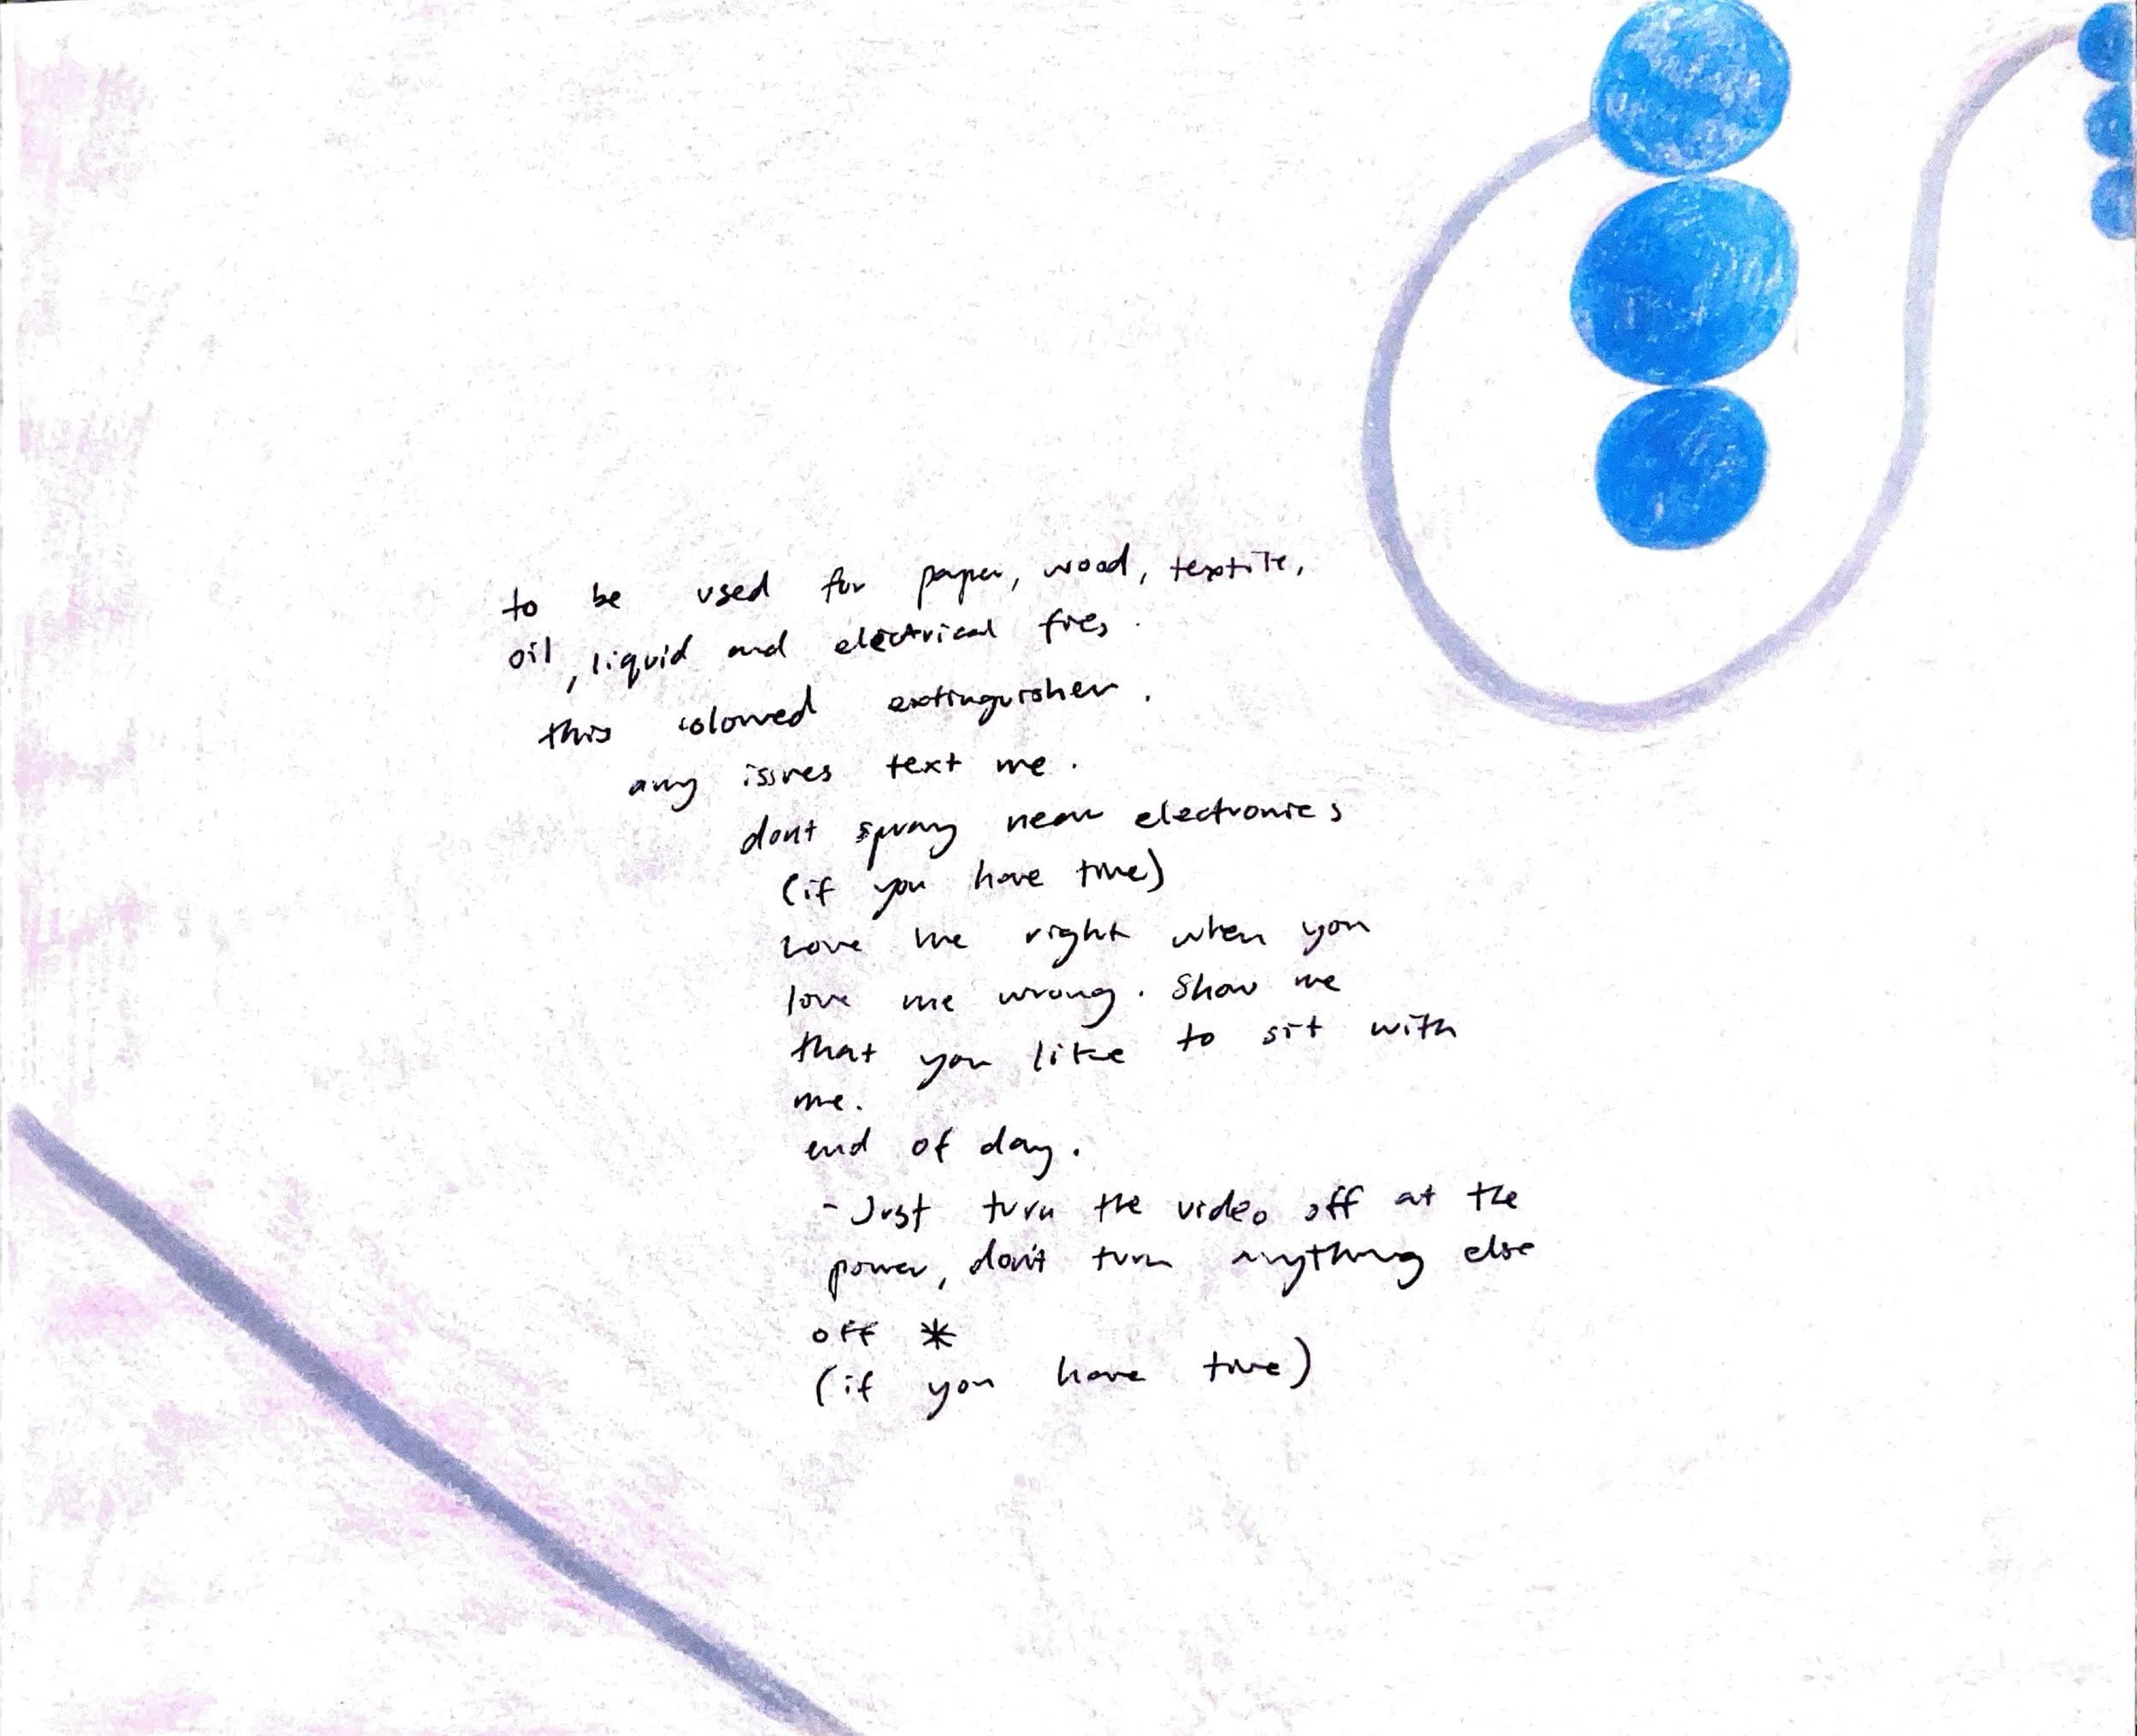 to be used for paper, wood, textile,
oil, liquid and electrical fires.
this coloured extinguisher.
any issues text me.
dont spray near electronics
(if you have time)
Love me right when you
love me wrong. Show me
that you like to sit with
me.
end of day.
- Just turn the video off at the
power, don't turn anything else
off *
(if you have time)